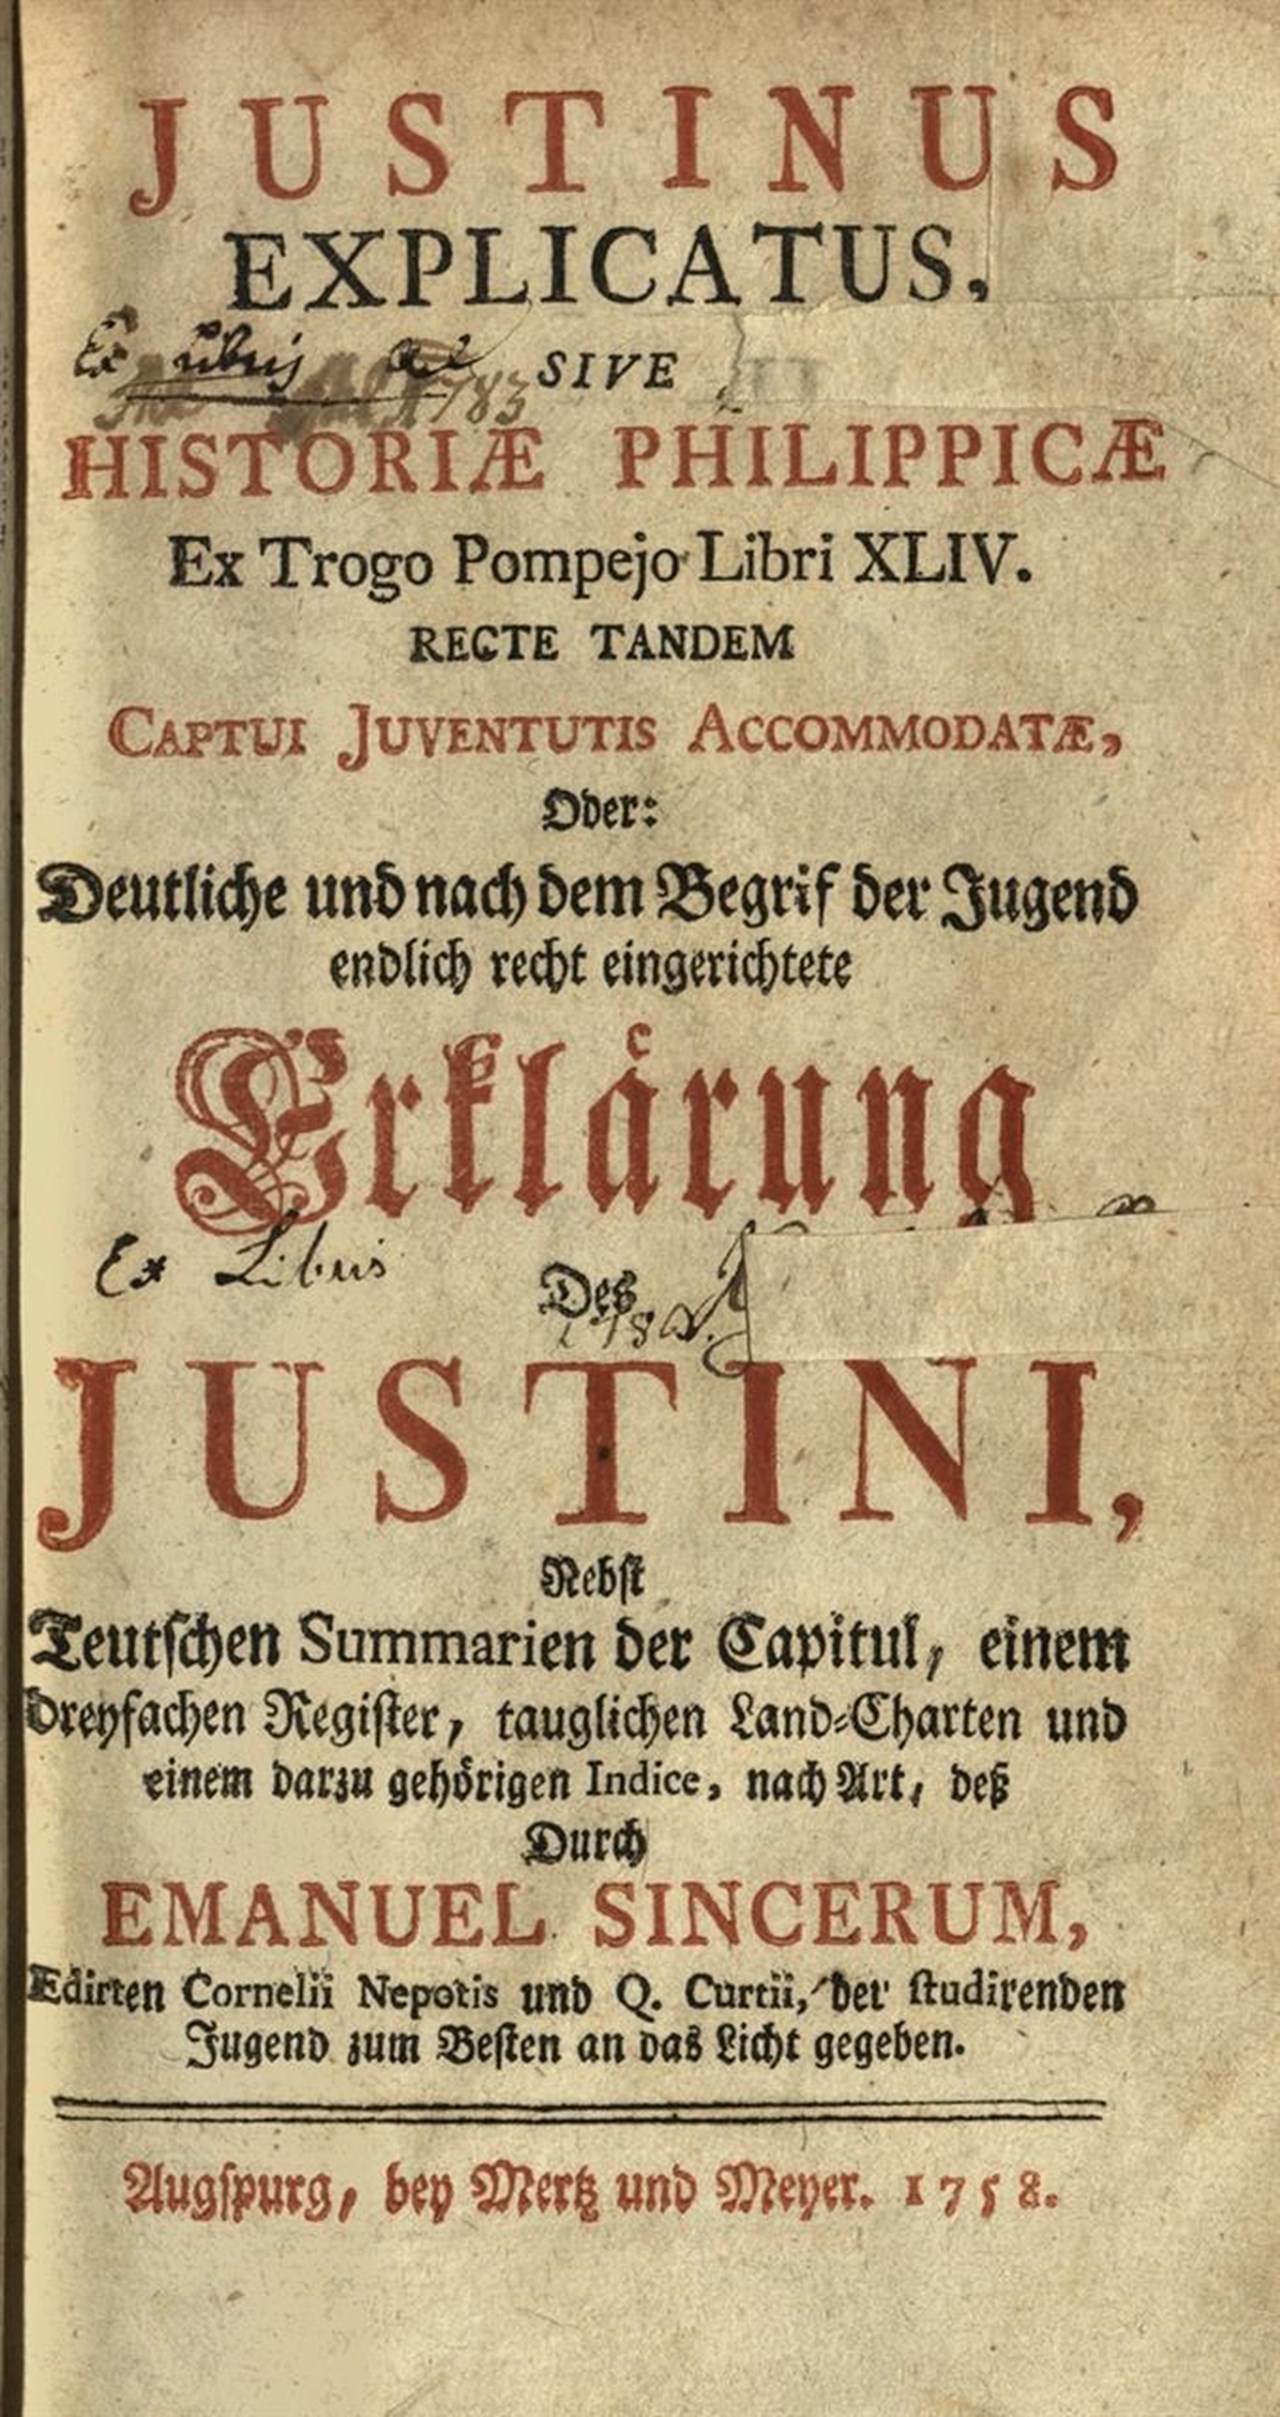 JUSTINUS
EXPLICATUS,
Ex Libris
SIVE
1783
HISTORIÆ PHILIPPICÆ
Ex Trogo Pompejo Libri XLIV.
RECTE TANDEM
CAPTUI JUVENTUTIS ACCOMMODATÆ,
Oder:
Deutliche und nach dem Begrif der Jugend
endlich recht eingerichtete
Erklärung
Ex Libris
Deß
JUSTINI,
Nebst
Teutschen Summarien der Capitul, einem
dreyfachen Register, tauglichen Land-Charten und
einem darzu gehörigen Indice, nach Art, deß
Durch
EMANUEL SINCERUM,
Edirten Cornelii Nepotis und Q. Curtii, der studirenden
Jugend zum Besten an das Licht gegeben.
Augspurg, bey Mertz und Meyer. 1758.